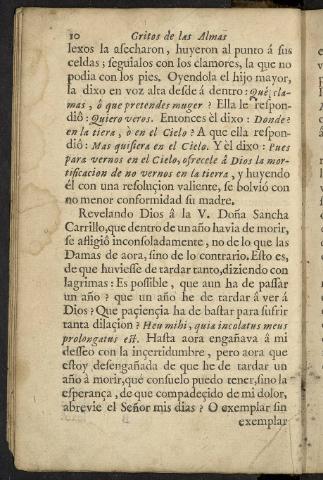 10 Gritos de las Almas
lexos la asecharon, huyeron al punto á sus
celdas; seguialos con los clamores, la que no
podia con los pies. Oyendola el hijo mayor,
la dixo en voz alta desde á dentro: Què cla-
mas, ò que pretendes muger? Ella le respon-
diô: Quiero veros. Entonces èl dixo: Donde?
en la tierra, ò en el Cielo? A que ella respon-
diô: Mas quisiera en el Cielo. Y èl dixo: Pues
para vernos en el Cielo, ofrecele á Dios la mor-
tificacion de no vernos en la tierra, y huyendo
èl con una resoluçion valiente, se bolviò con
no menor conformidad su madre.
Revelando Dios â la V. Doña Sancha
Carrillo, que dentro de un año havia de morir,
se afligiô inconsoladamente, no de lo que las
Damas de aora, sino de lo contrario. Esto es,
de que huviesse de tardar tanto, diziendo con
lagrimas: Es possible, que aun ha de passar
un año? que un año he de tardar â ver á
Dios? Que paçiençia ha de bastar para sufrir
tanta dilaçion? Heu mihi, quia incolatus meus
prolongatus est. Hasta aora engañava á mi
desseo con la inçertidumbre, pero aora que
estoy desengañada de que he de tardar un
año à morir, què consuelo puedo tener, sino la
esperança, de que compadeçido de mi dolor,
abrevie el Señor mis dias? O exemplar sin
exemplar